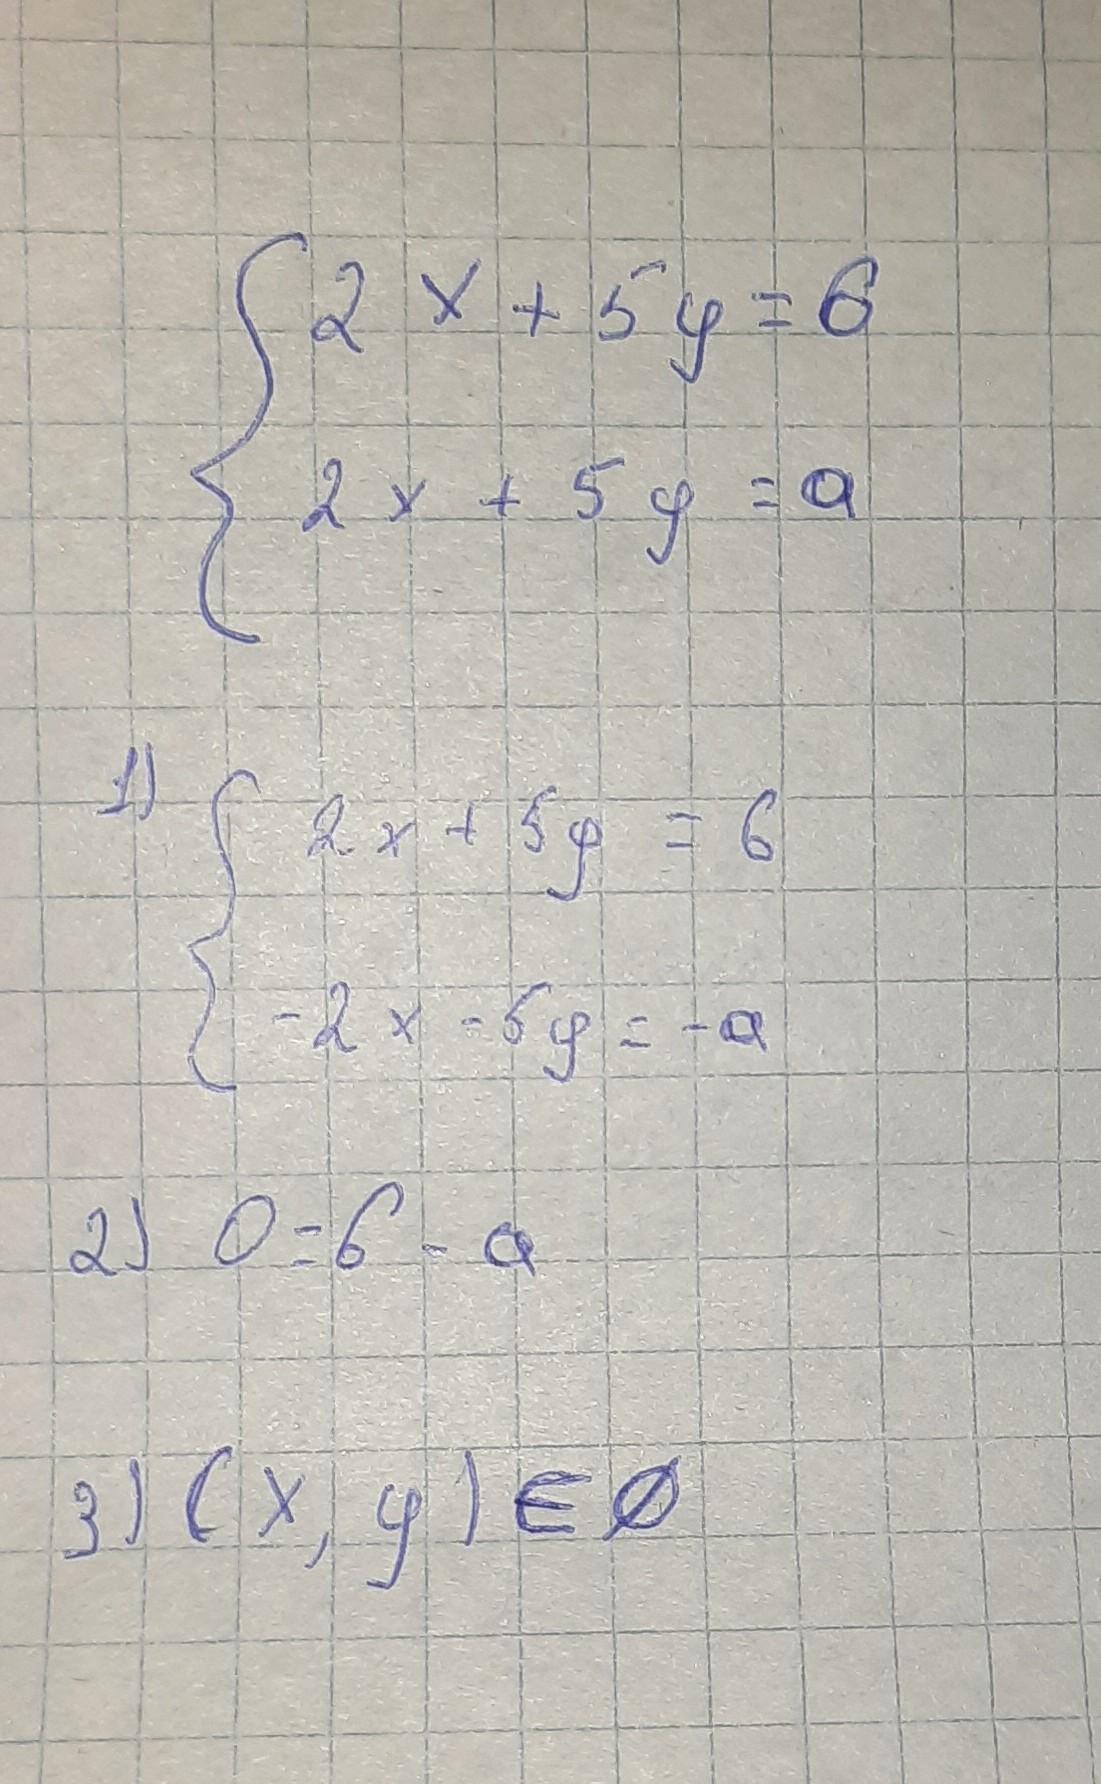 { 2x + 5y = 6
2x + 5y = a
1) { 2x + 5y = 6
-2x - 5y = -a
2) 0 = 6 - a
3) (x, y) ∈ ∅